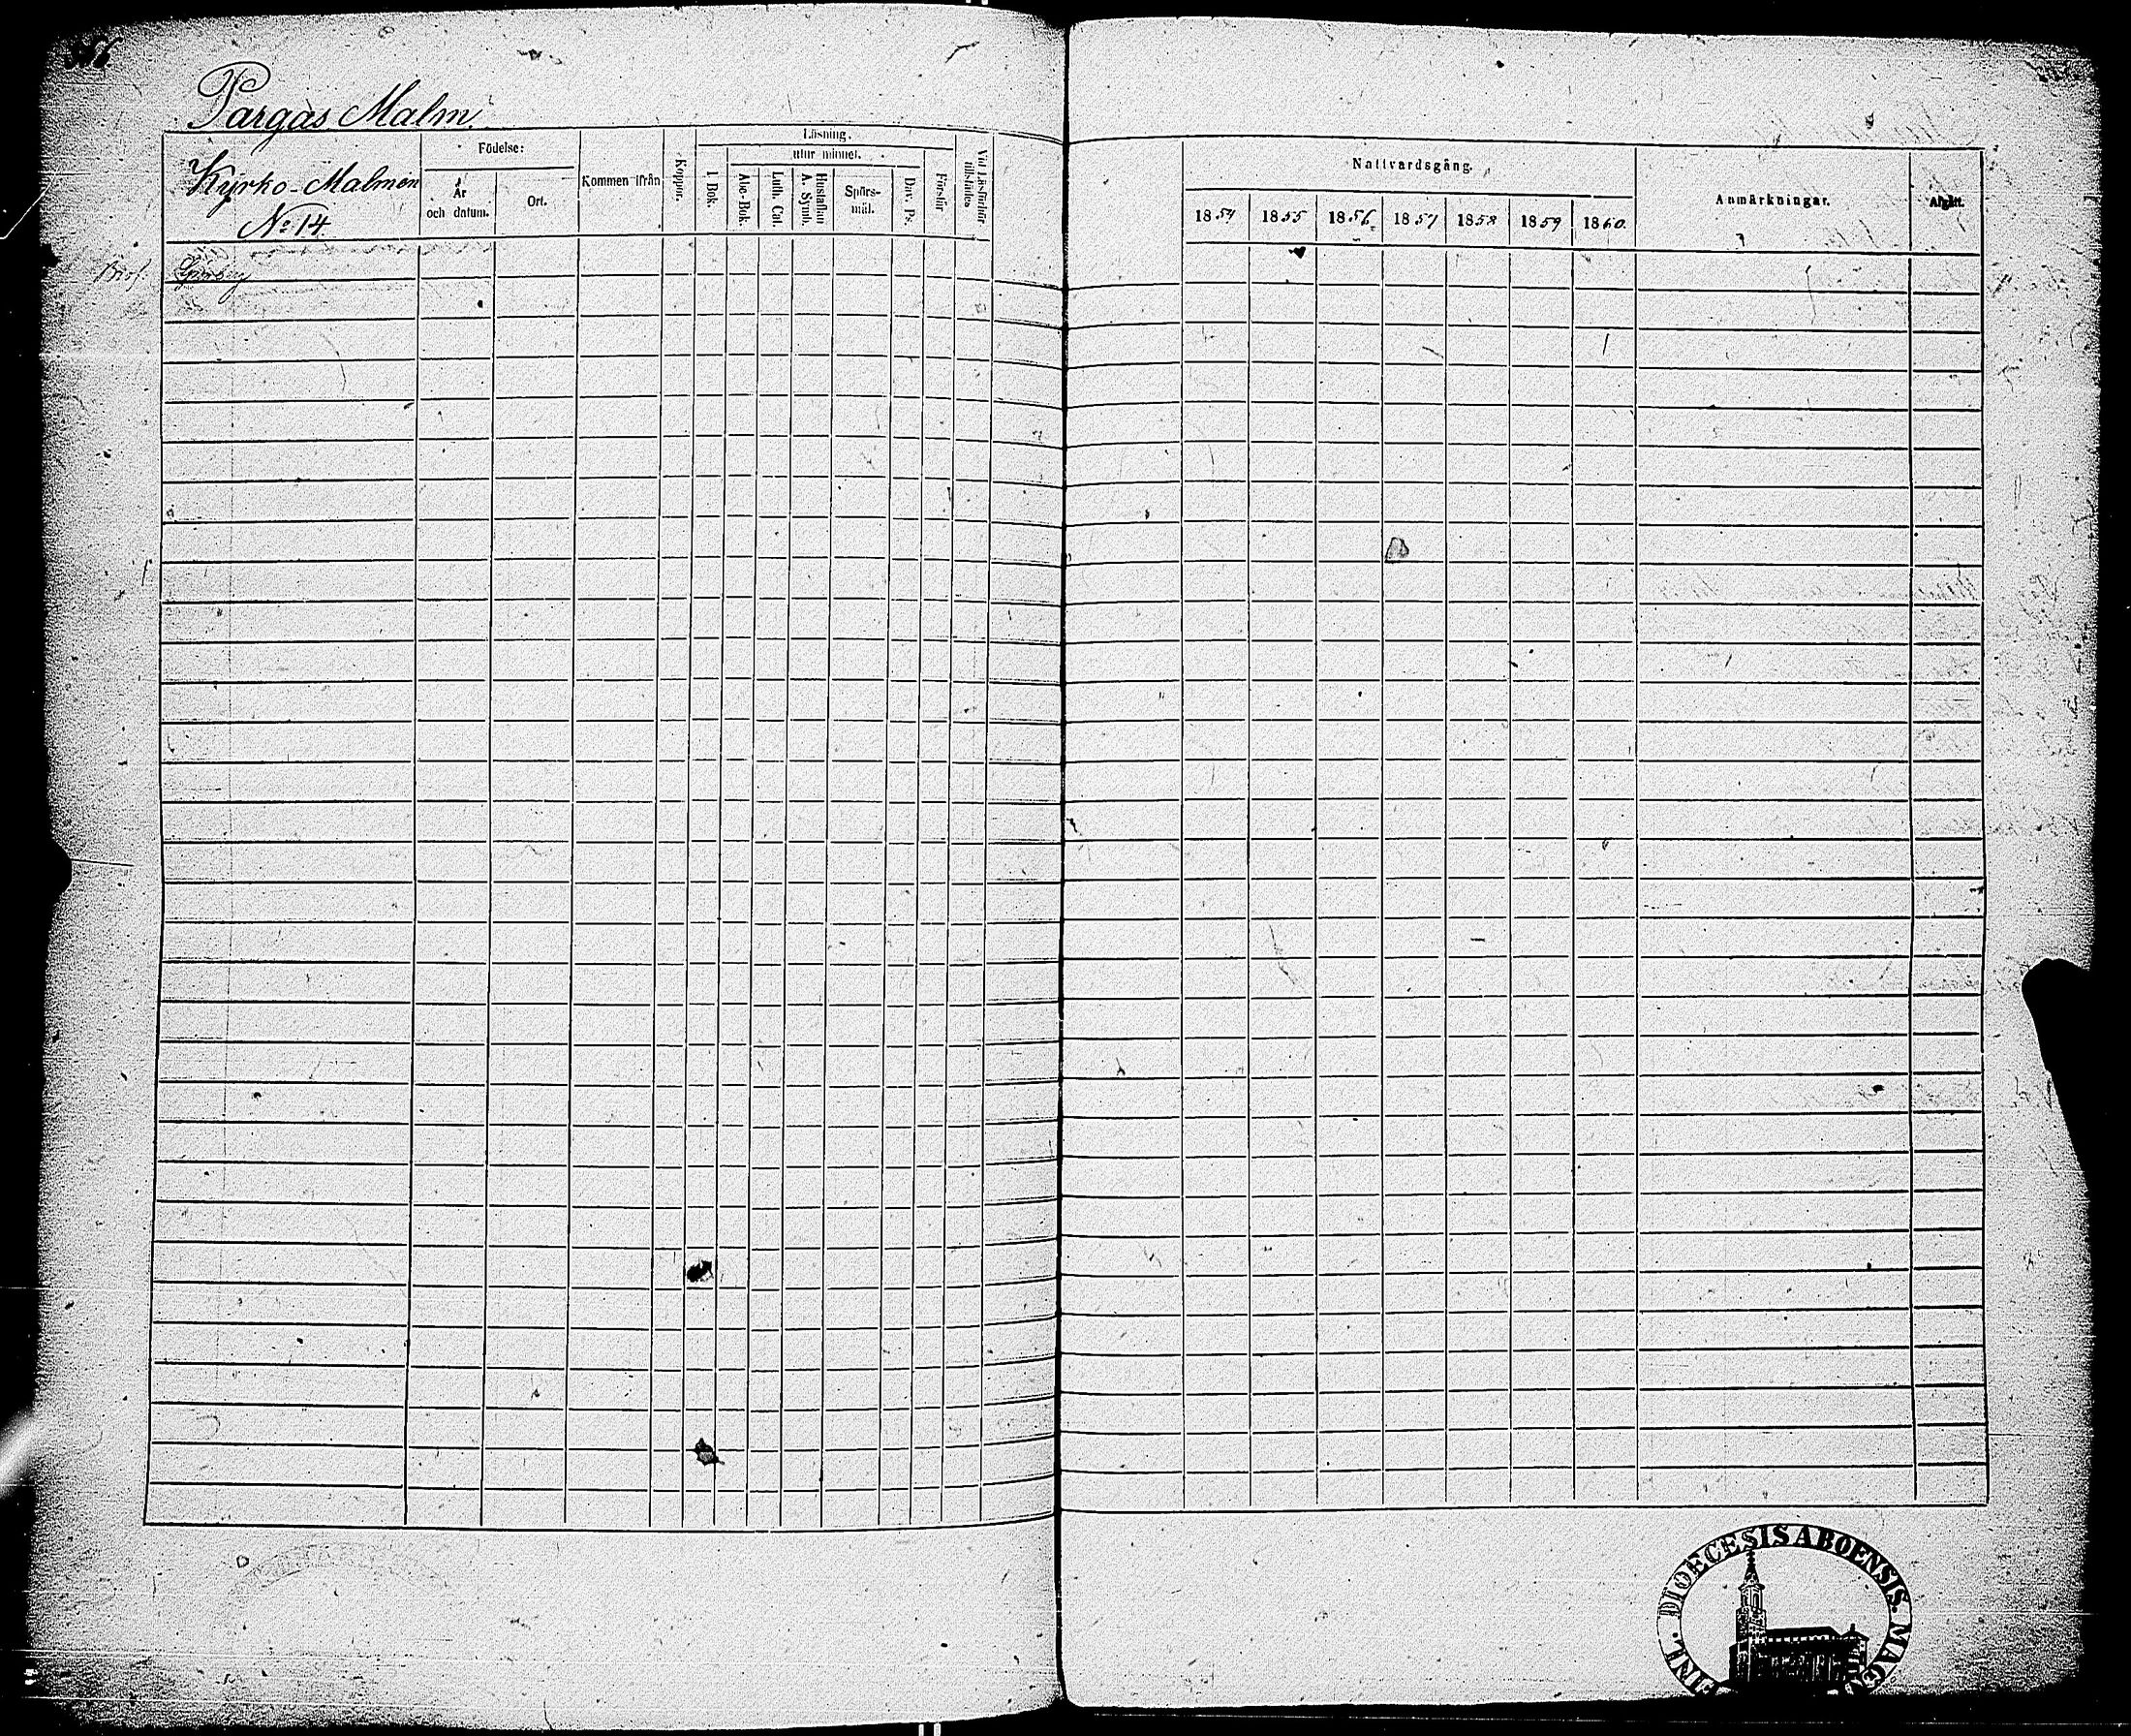 Pargas Malm
Kyrko-Malmen
No 14.
Födelse:
År
och datum.
Ort.
Kommen ifrån
Koppor.
Läsning.
utur minnet.
I. Bok.
Abc-Bok.
Luth. Cat.
Hustaflan
A. Symb.
Spörs-
mål.
Dav. Ps.
Förstår
Vid Läsförhör
tillstädes
Nattvardsgång.
1854 1855 1856. 1857 1858 1859 1860.
Anmärkningar.
Afgått.
DIOECESIS ABOENSIS. MAG